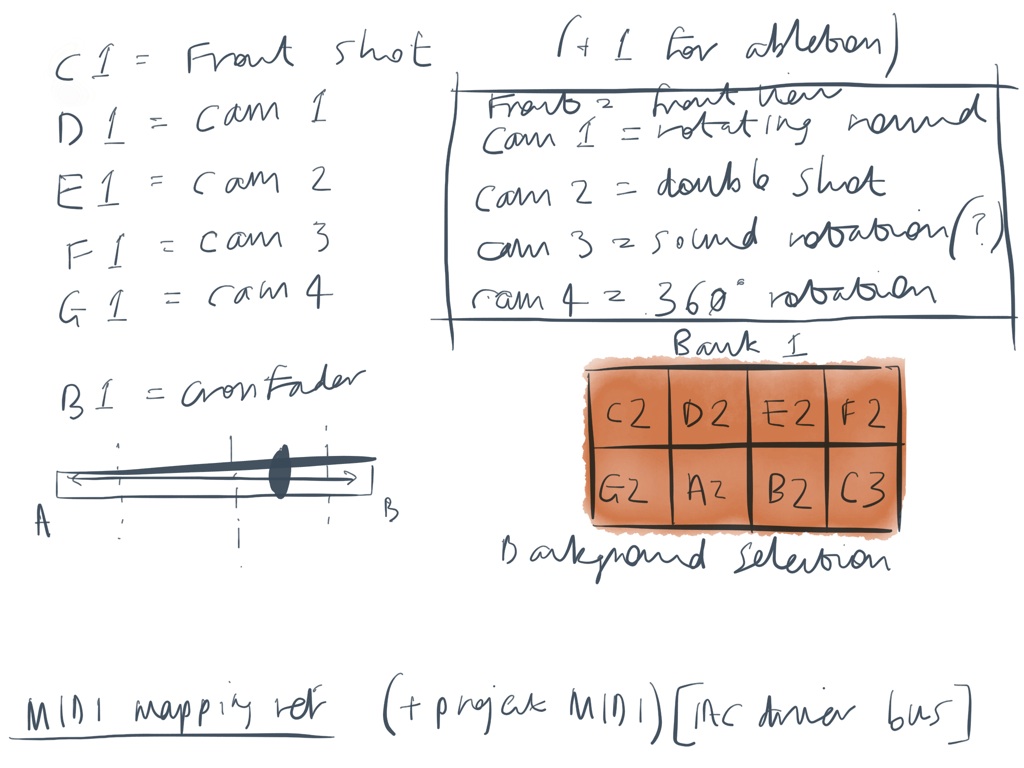 C1 = Front shot
D1 = cam 1
E1 = cam 2
F1 = cam 3
G1 = cam 4
B1 = CrossFader
A B
(+ 1 for ableton)
Front = front view
Cam 1 = rotating round
Cam 2 = double shot
cam 3 = sound rotation (?)
cam 4 = 360° rotation
Bank 1
C2 D2 E2 F2
G2 A2 B2 C3
Background selection
MIDI mapping ref (+ project MIDI) [IAC driver bus]